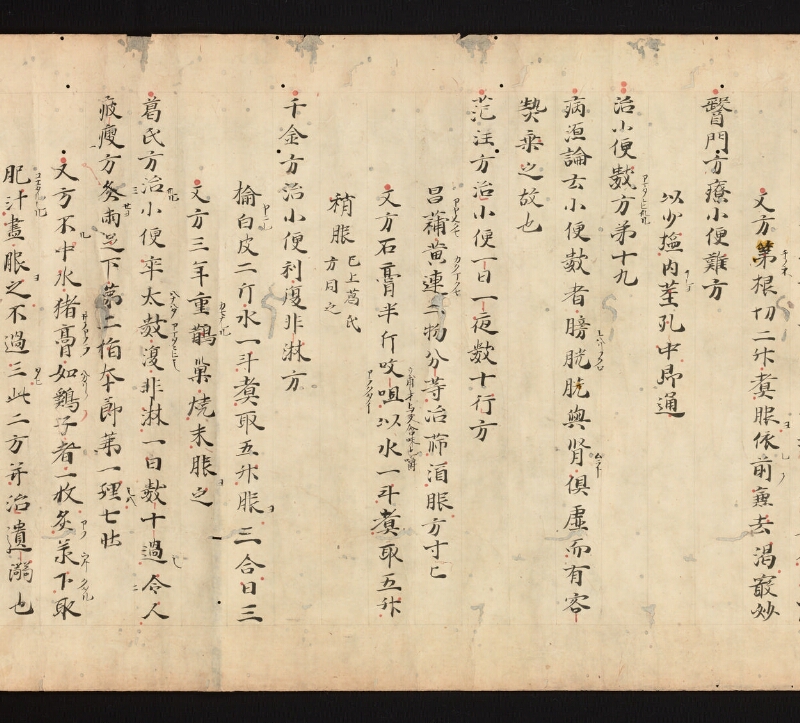 又方葦根切二升煮服依前兼去渇最妙
醫門方療小便難方
以少塩内茎孔中即通
治小便數方第十九
病源論云小便數者膀胱與腎倶虛而有客
𤍠乗之故也
范汪方治小便一日一夜数十行方
昌蒲黄連二物分等治篩酒服方寸匕
又方石膏半斤㕮咀以水一斗煮取五升
稍服已上葛氏方同之
千金方治小便利復非淋方
榆白皮二斤水一斗煮取五升服三合日三
又方三年重鵲巣燒末服之
葛氏方治小便卒太數復非淋一日數十過令人
疲瘦方灸兩足下第二指本節第一理七壮
又方不中水猪膏如鷄子者一枚炙承下取
肥汁盡服之不過三此二方并治遺溺也